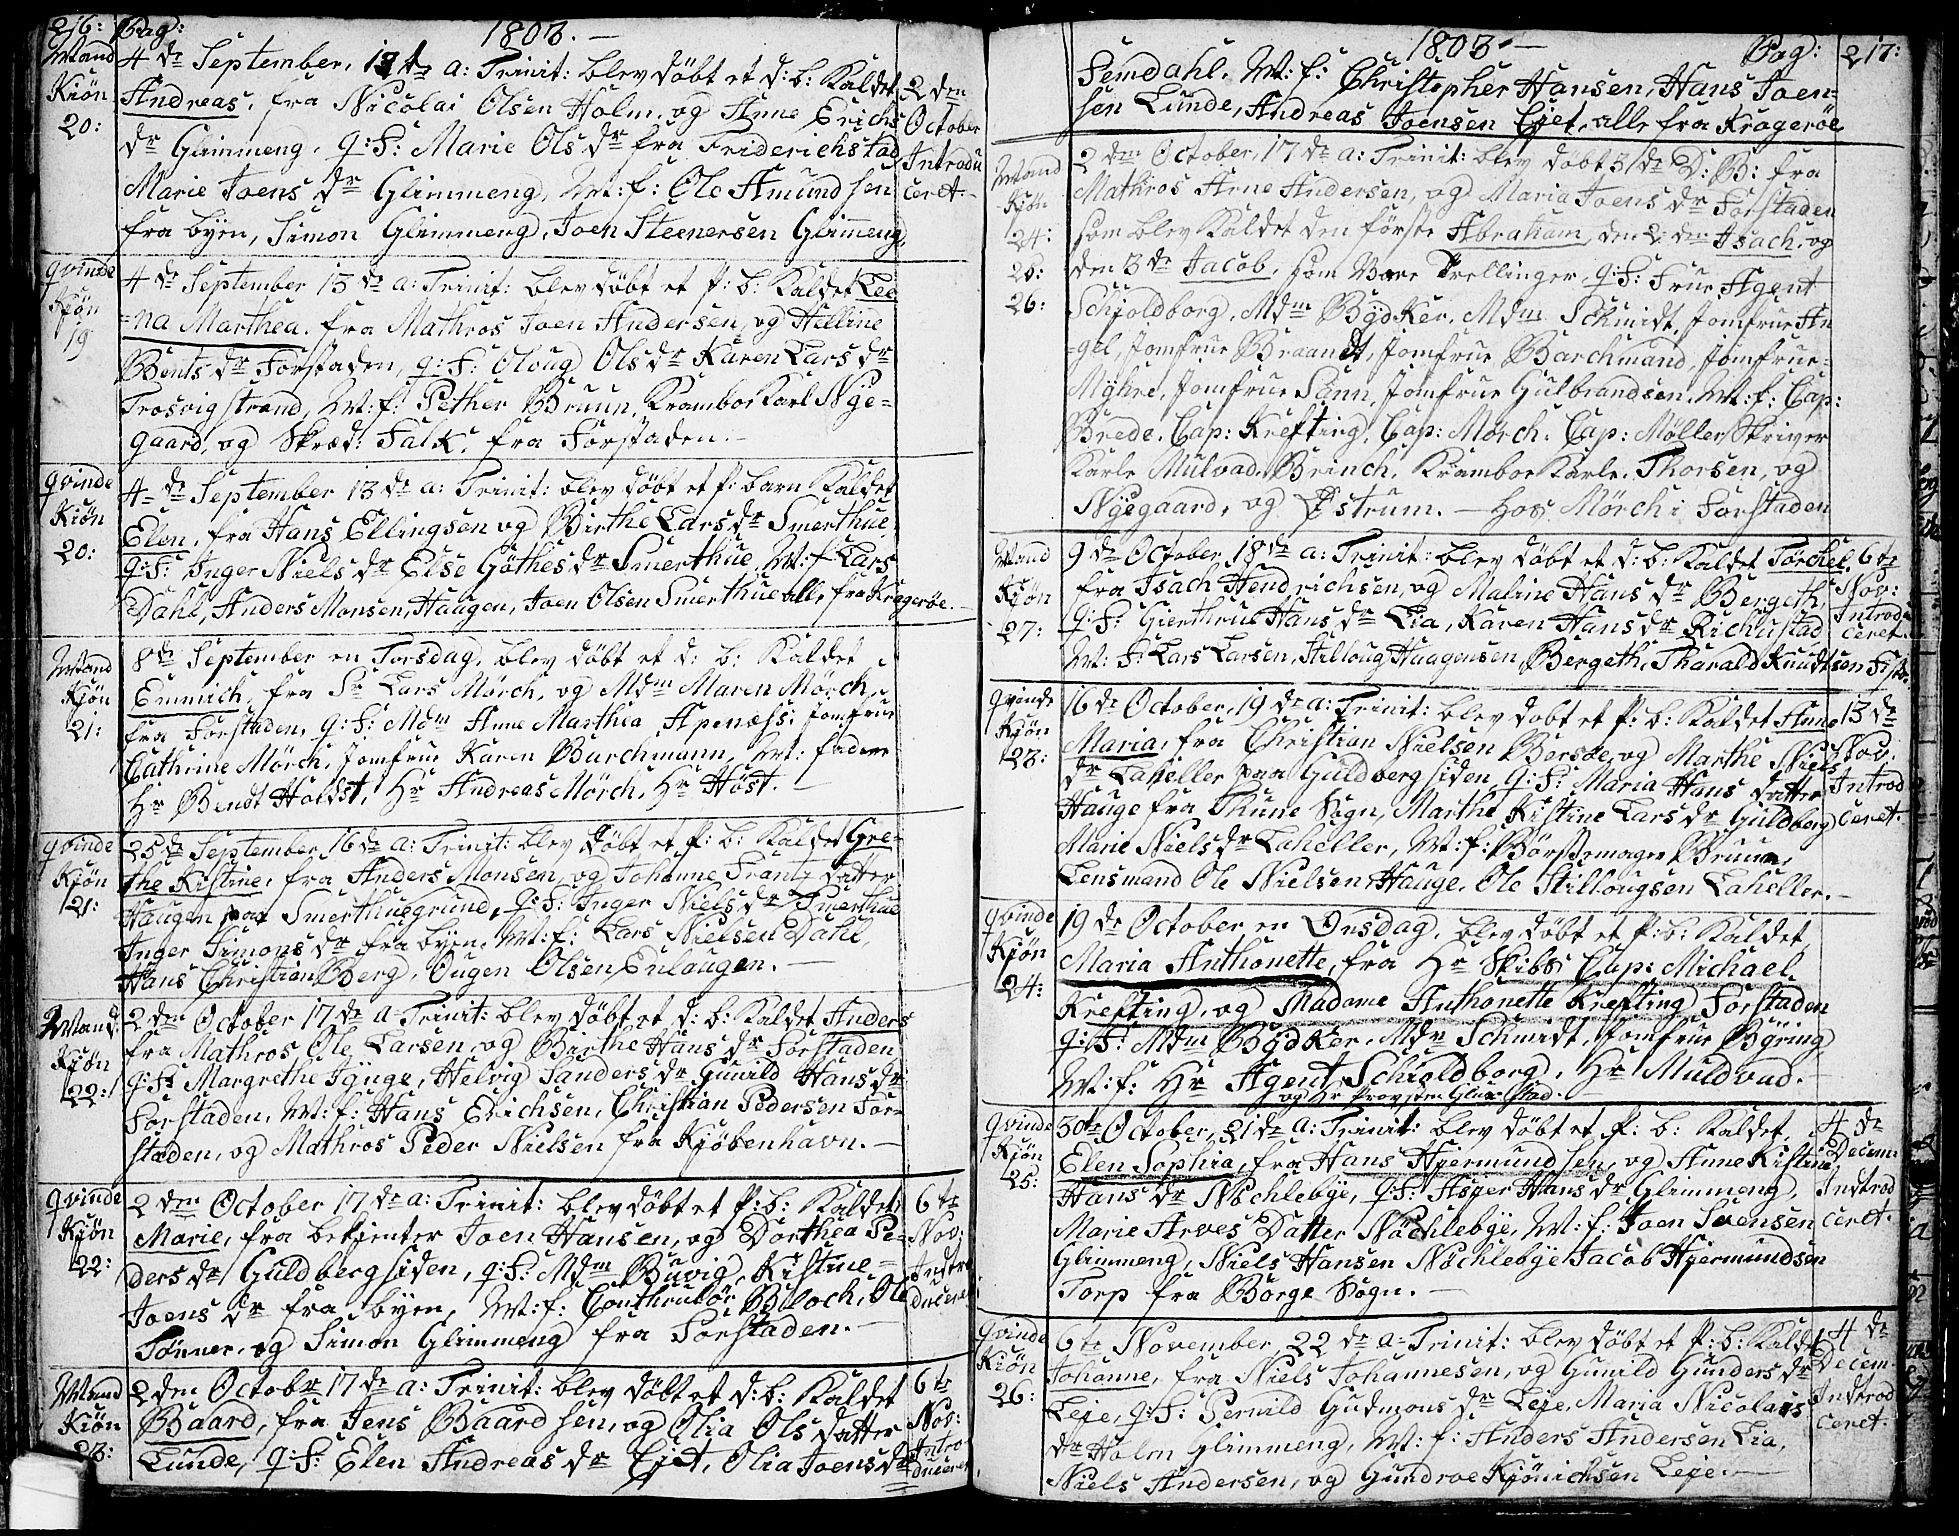 216: Pag: 1803. —
Mand Kiøn 20:
4 de September, 13 de a: Trinit: blev døbt et d: b: Kaldet
Andreas, fra Nicolai Olsen Holm, og Anne Erichs
dr Glimmeng, q: F: Marie Ols dr fra Friderichstad
Marie Joens dr Glimmeng, M: f: Ole Amundsen
fra byen, Simon Glimmeng, Joen Steenersen Glimeng,
2 den October Introdu ceret.
qvinde Kjøn 19
4 de September 13 de a: Trinit: blev døbt et P: b: Kaldet Lee
=na Marthea, fra Mathros Joen Andersen, og Helline
Bents dr Forstaden, q: F: Oloug Ols dr Karen Lars dr
Trosvigstrand, M: f: Pether Bruun, Krambor Karl Nye-
gaard, og Skræd: Falk, fra Forstaden.—
qvinde Kiøn 20:
4 de September 13 de a: Trinit: blev døbt et P: barn Kaldet
Elen, fra Hans Ellingsen og Birthe Lars dr Smerthue
q: F: Inger Niels dr Else Gøthes dr Smerthue, M: f Lars
Dahl, Anders Monsen, Haugen, Joen Olsen Smerthue alle fra Kragerøe.—
Mand Kjøn 21:
8 de September en Torsdag, blev døbt et d: b: Kaldet
Emmich, fra Sr Lars Mørch, og Mdm Maren Mørch,
fra Forstaden, q: F: Mdm Anne Marthea Apenæss: Jomfrue
Cathrine Mørch, Jomfrue Karen Barchmann, M: fadere
Hr Bendt Holdst, Hr Andreas Mørch, Hr Høst.—
qvinde Kjøn 21:
25 de September, 16 de a: Trinit: blev døbt et P: b: Kaldet Gre-
the Kistine, fra Anders Monsen, og Johanne Frantz datter
Haugen paa Smerthuegrund, q: F: Inger Niels dr Smerthue
Inger Simons dr fra byen, M: f: Lars Nielsen Dahl,
Hans Christian Berg, Ougen Olsen Enlaugen.—
Mand: Kjøn 22:
2 den October 17 de a Trinit: blev døbt et d: b: Kaldet Anders
fra Mathros Ole Larsen, og Birthe Hans dr Forstaden
q: F: Margrethe Tynge, Helvig Sanders dr Gunild Hans dr
Forstaden, M: f: Hans Erichsen, Christian Pedersen For-
staden, og Mathros Peder Nielsen fra Kjøbenhavn.—
qvinde Kjøn 22:
2 den October 17 de a: Trinit: blev døbt et P: b: Kaldet
Marie, fra bekienter Joen Hansen, og Dorthea Pe-
ders dr Guldbergsiden, q: F: Mdm Buvig, Kistine=
Joens dr fra byen, M: f: Conthrulør Bloch, Ole
Tønner, og Simon Glimmeng fra Forstaden.—
6 te Nov: Indtro duceret
Mand Kiøn 23:
2 den Octobr 17 de a: Trinit: blev døbt et d: b: Kaldet
Baard, fra Jens Baardsen, og Olia Ols datter
Lunde, q: F: Elen Andreas dr Ejet, Olia Joens dr
6 te Nov: Intro- duceret
1803.— Pag: 217:
Semdahl, M: f: Christopher Hansen, Hans Joen-
sen Lunde, Andreas Joensen Ejet, alle fra Kragerøe
Mand Kjøn 24: 25: 26:
2 den October, 17 de a: Trinit: blev døbt 3 de D: B: fra
Mathros Arne Andersen, og Maria Joens dr Forstaden
som blev Kaldet den første Abraham, den 2 den Isach, og
den 3 de Jacob, som Vare Trellinger, q: F: Frue Agent
Schjoldborg, Mdm Bydker, Mdm Schmidt, Jomfrue An
=gel, Jomfrue Braandt, Jomfrue Barchmand, Jomfrue=
Myhre, Jomfrue Sann, Jomfrue Gulbrandsen, M: f: Cap:
Brede, Cap: Krefting, Cap: Mørch, Cap: Møller, Skriver
Karle Mulvad, Brinch, Kramboe Karle, Thorsen, og
Nyegaard, og Østrum. — Hos Mørch i Forstaden
Mand Kjøn 27:
9 de October, 18 de a: Trinit: blev døbt et d: b: Kaldet Torchel,
fra Isach Hendrichsen, og Maline Hans dr Bergeth,
q: F: Gierthrue Hans dr Lia, Karen Hans dr Richustad
M: F: Lars Larsen, Stilloug Haagensen, Bergeth, Tharald Knudtsen
6 te Nov: Introdu ceret.
qvinde Kjøn 23:
16 de October, 19 de a: Trinit: blev døbt et P: b: Kaldet Anne
Maria, fra Christian Nielsen Bersøe, og Marthe Niels
dr Laheller paa Guldbergsiden, q: F: Maria Hans datter
Hauge fra Thune Sogn, Marthe Kistine Lars dr Guldberg
Marie Niels dr Laheller, M: f: Børstemager Bruun,
Lensmand Ole Nielsen Hauge, Ole Stillougsen Laheller.—
13 de Nov: Introd ceret.
qvinde Kjøn 24:
19 de October en Onsdag, blev døbt et P: b: Kaldet
Maria Anthonette, fra Hr Skibs Cap: Michael
Krefting, og Madame Anthonette Krefting Forstaden
q: F: Mdm Bydker, Mdm Schmidt, Jomfrue Byring,
M: f: Hr Agent Schioldborg, Hr Muldvad.
og Hr Provsten Glückstad.
qvinde Kjøn 25:
30 te October, 21 de a: Trinit: blev døbt et P: b: Kaldet,
Elen Sophia, fra Hans Hjermundsen, og Anne Kistine
Hans dr Nøchlebye, q: F: Asper Hans dr Glimmeng,
Marie Arves Datter Nøchlebye, M: f: Joen Svensen
Glimmeng, Niels Hansen Nøchlebye Jacob Hjermundsen
Torp fra Borge Sogn.—
4 de Decem: Indtrod ceret.
qvinde Kiøn 26:
6 te November, 22 de a: Trinit: blev døbt et P: b: Kaldet
Johanne, fra Niels Johannesen, og Gunild Gunders dr
Leje, q: F: Pernild Gudmons dr Leje, Maria Nicolais
dr Holm Glimmeng, M: f: Anders Andersen Lia,
Niels Andersen, og Gundroe Kjønichsen Leje.—
4 de Decem: Indtrod ceret.